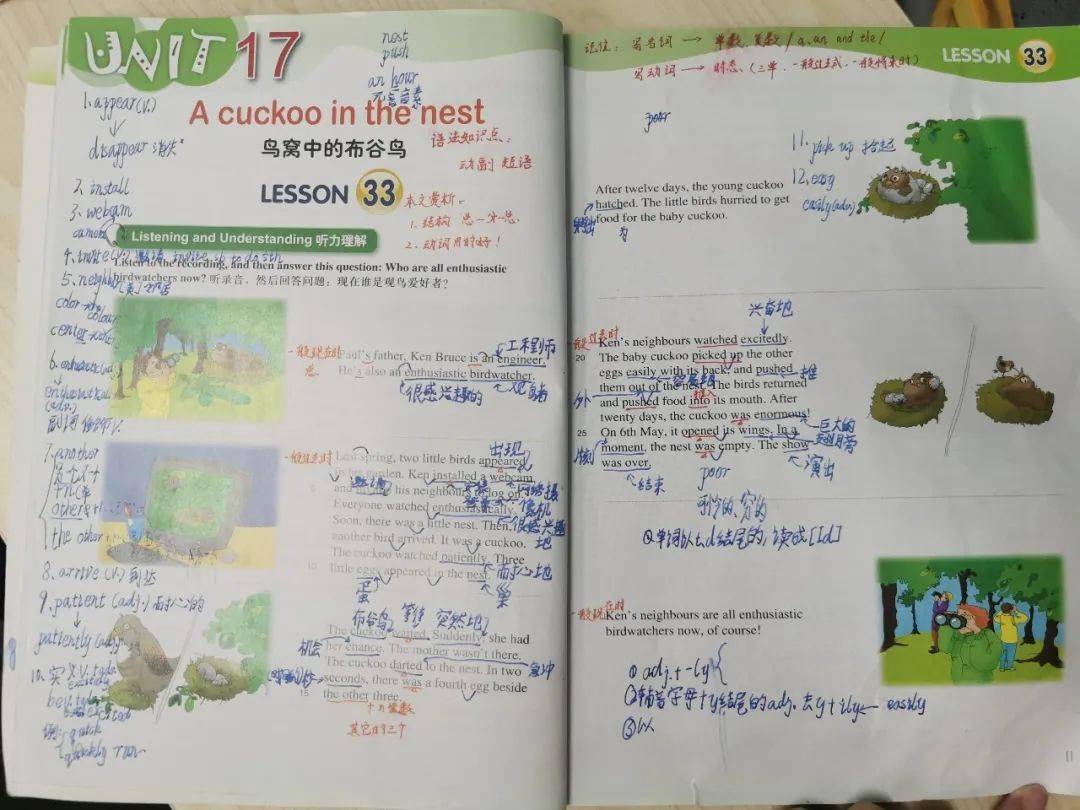 UNIT 17
nest
push
an hour
元音音素
1. appear (v.)
↓
disappear 消失
A cuckoo in the nest
鸟窝中的布谷鸟
语法知识点:
动副 短语
LESSON 33
2. install
3. webcam
camera
本文赏析:
1. 结构 总—分—总
2. 动词用的好!
Listening and Understanding 听力理解
4. invite (v.) 邀请 invite sb to do sth
Listen to the recording, and then answer this question: Who are all enthusiastic
birdwatchers now? 听录音,然后回答问题:现在谁是观鸟爱好者?
5. neighbour
color
colour
center
一般现在时
工程师
Paul's father, Ken Bruce is an engineer.
He's also an enthusiastic birdwatcher.
很感兴趣的
观鸟者
(adv.)
副词 修饰V.
7. another
the other
一般过去时
出现
Last spring, two little birds appeared
in his garden. Ken installed a webcam
邀请
5
and invited his neighbours to log on.
Everyone watched enthusiastically.
很感兴趣地
Soon, there was a little nest. Then,
another bird arrived. It was a cuckoo.
The cuckoo watched patiently. Three
耐心地
10
little eggs appeared in the nest.
蛋
巢
8. arrive (v.) 到达
9. patient (adj.) 耐心的
↓
patiently (adv.)
布谷鸟
等待
突然地
The cuckoo waited. Suddenly, she had
机会
her chance. The mother wasn't there.
The cuckoo darted to the nest. In two
急冲
seconds, there was a fourth egg beside
15
the other three.
其它的三个
quick
quickly run
记住: 写名词 → 单数、复数 / a, an and the /
写动词 → 时态.(三单、一般过去式、一般将来时)
LESSON 33
poor
11. pick up 拾起
12. easy
easily (adv.)
After twelve days, the young cuckoo
hatched. The little birds hurried to get
孵出
food for the baby cuckoo.
为
兴奋地
一般过去时
Ken's neighbours watched excitedly.
20
The baby cuckoo picked up the other
eggs easily with its back, and pushed
推
them out of the nest. The birds returned
外
推入
and pushed food into its mouth. After
twenty days, the cuckoo was enormous!
巨大的
25
On 6th May, it opened its wings. In a
翅膀
片刻
moment, the nest was empty. The show
演出
was over.
结束
poor
可怜的, 穷的
②单词以t、d结尾的, 读成[Id]
一般现在时
Ken's neighbours are all enthusiastic
birdwatchers now, of course!
① adj. + -ly
②辅音字母+y结尾的adj. 去y+ily easily
③以